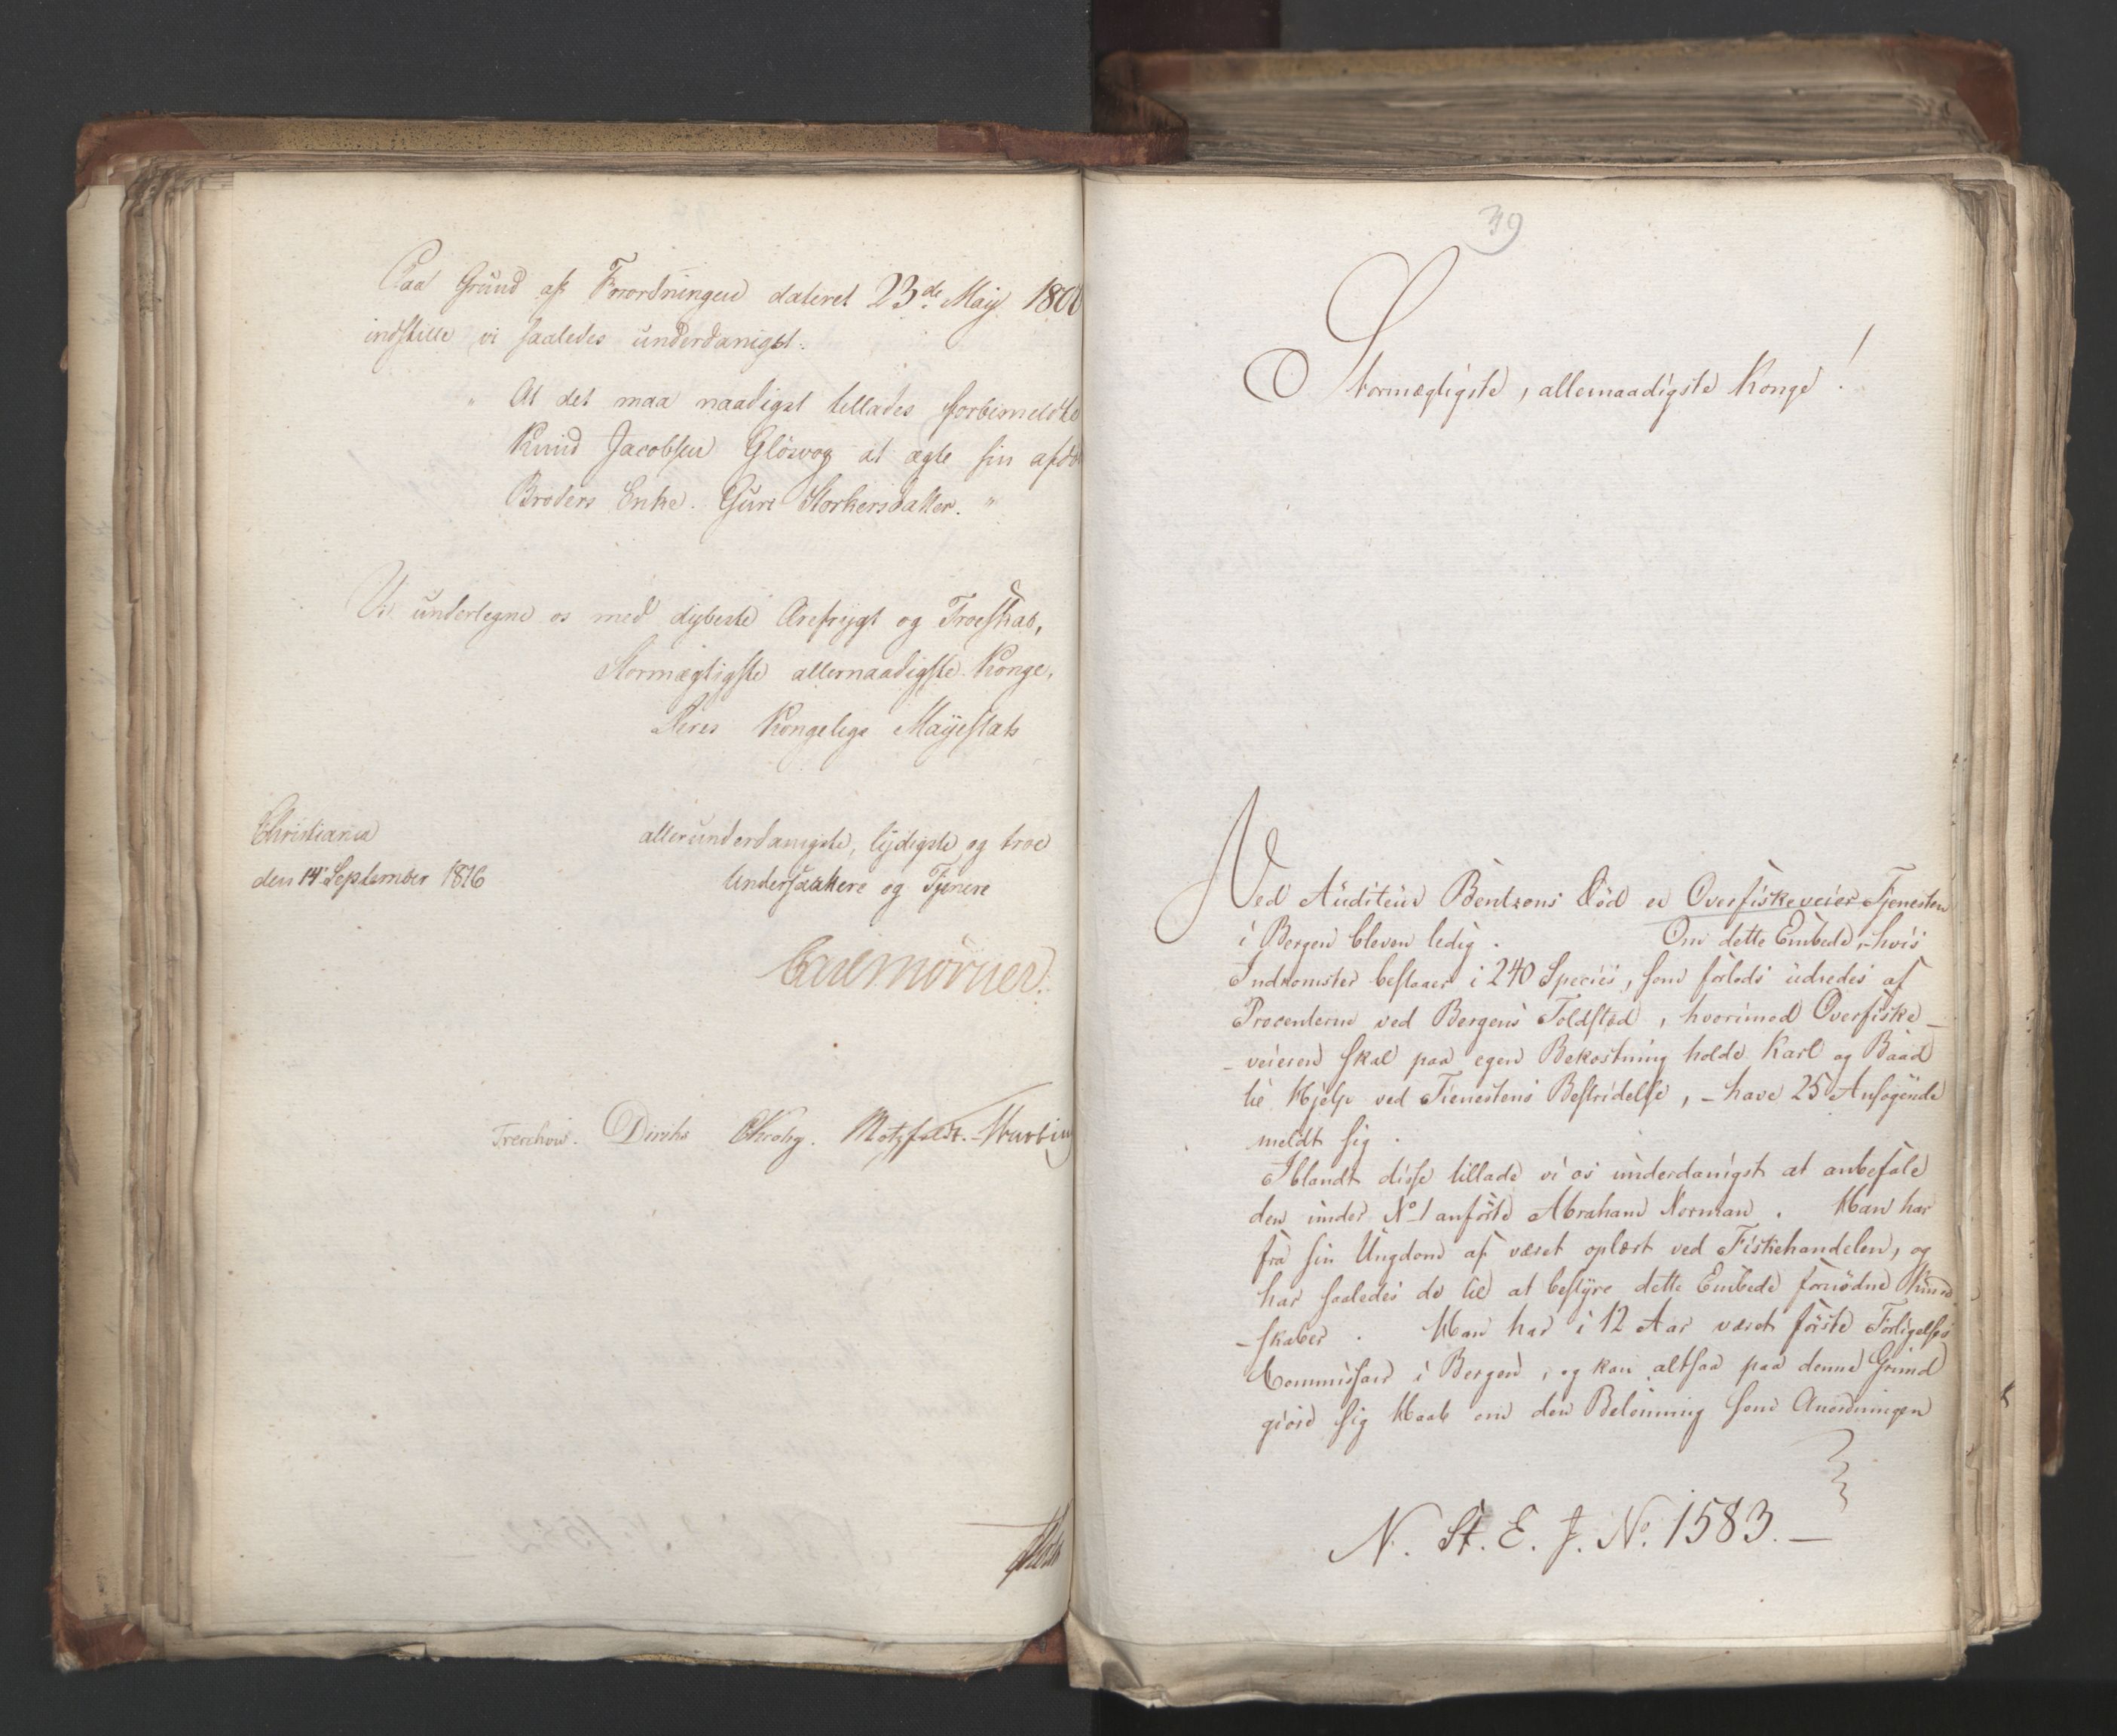 Paa Grund af Forordningen dateret 23de May 1800
indstille vi saaledes underdanigst:
" At det maa naadigst tillades forbemeldte
Knud Jacobsen Glöwog at ægte sin afdö
Broders Enke Guri Storkersdatter. "
Vi undertegne os med dybeste Ærefrygt og Troeskab,
Stormægtigste allernaadigste Konge,
Deres Kongelige Mayestæts
Christiania
den 14 September 1816
allerunderdanigste, lydigste og troe
Undersaattere og Tjenere
Carl Mörner.
Treschow. Diriks Krohg. Motzfeldt.
39
Stormægtigste, allernaadigste Konge!
Ved Auditeur Bentzons Död er Overfiskeveier Tjenesten
i Bergen bleven ledig. Om dette Embede, - hvis
Indkomster bestaaer i 240 Species, som forlods udredes af
Procenterne ved Bergens Toldsted, hvorimod Overfiske-
-veieren skal paa egen Bekostning holde Karl og Baad
til Hjelp ved Tienestens Bestridelse, - have 25 Ansögende
meldt sig.
Iblandt disse tillade vi os underdanigst at anbefale
den under No 1 anförte Abraham Norman. Han har
fra sin Ungdom af været oplært ved Fiskehandelen, og
har saaledes de til at bestyre dette Embede fornödne Kund
-skaber. Han har i 12 Aar været förste Forligelses
Commissair i Bergen, og kan altsaa paa denne Grund
giöre sig Haab om den Belönning som Anordningen
N. St. E. J. No. 1583. -